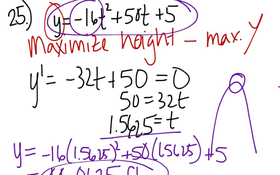 25.) y = -16t² + 50t + 5
maximize height - max. y
y' = -32t + 50 = 0
50 = 32t
1.5625 = t
y = -16(1.5625)² + 50(1.5625) + 5